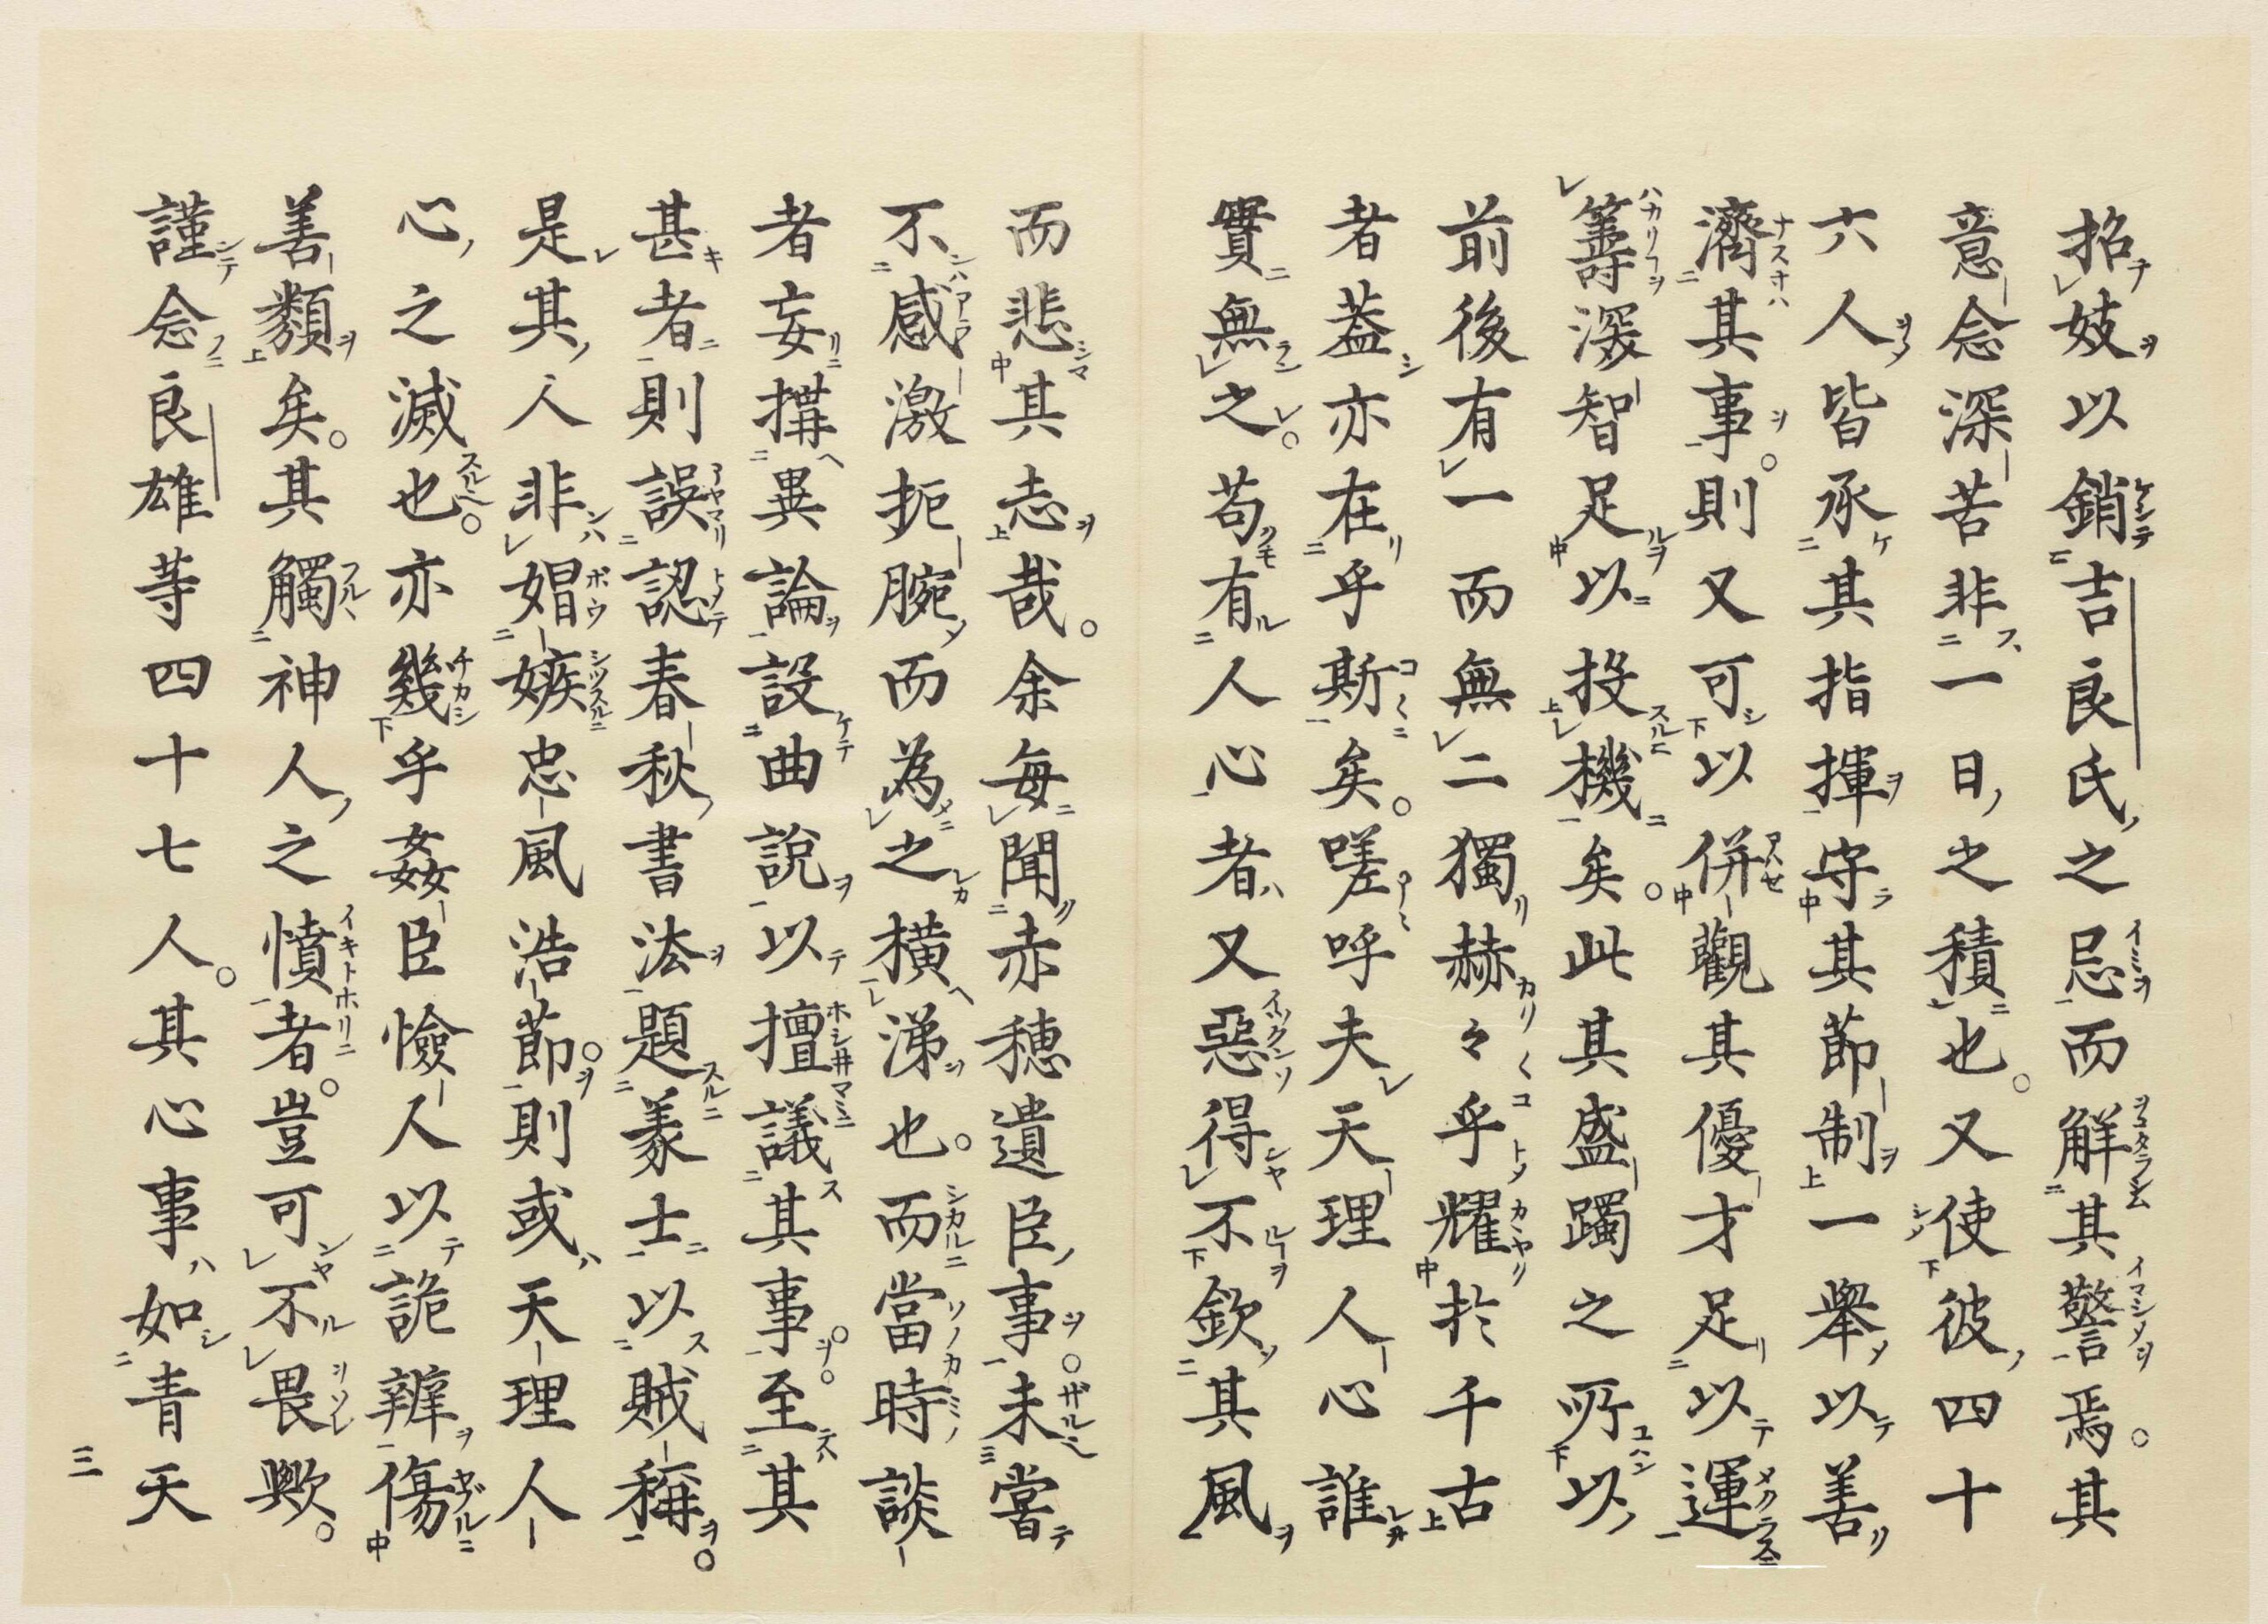 招妓以銷吉良氏之忌而解其警焉。其
意念深苦非一日之積也。又使彼四十
六人皆承其指揮守其節制一舉以善
濟其事。則又可以併觀其優才足以運
籌深智足以投機矣。此其盛躅之所以
前後有一而無二獨赫々乎耀於千古
者蓋亦在乎斯矣。嗟呼夫天理人心誰
實無之。苟有人心者又惡得不欽其風
而悲其志哉。余每聞赤穗遺臣事。未嘗
不感激扼腕而為之橫涕也。而當時談
者妄搆異論設曲說以擅議其事。至其
甚者則誤認春秋書法題義士以賊稱。
是其人非媢嫉忠風浩節。則或天理人
心之滅也。亦幾乎姦臣憸人以詭辨傷
善類矣。其觸神人之憤者。豈可不畏歟。
謹念良雄等四十七人。其心事如青天
三